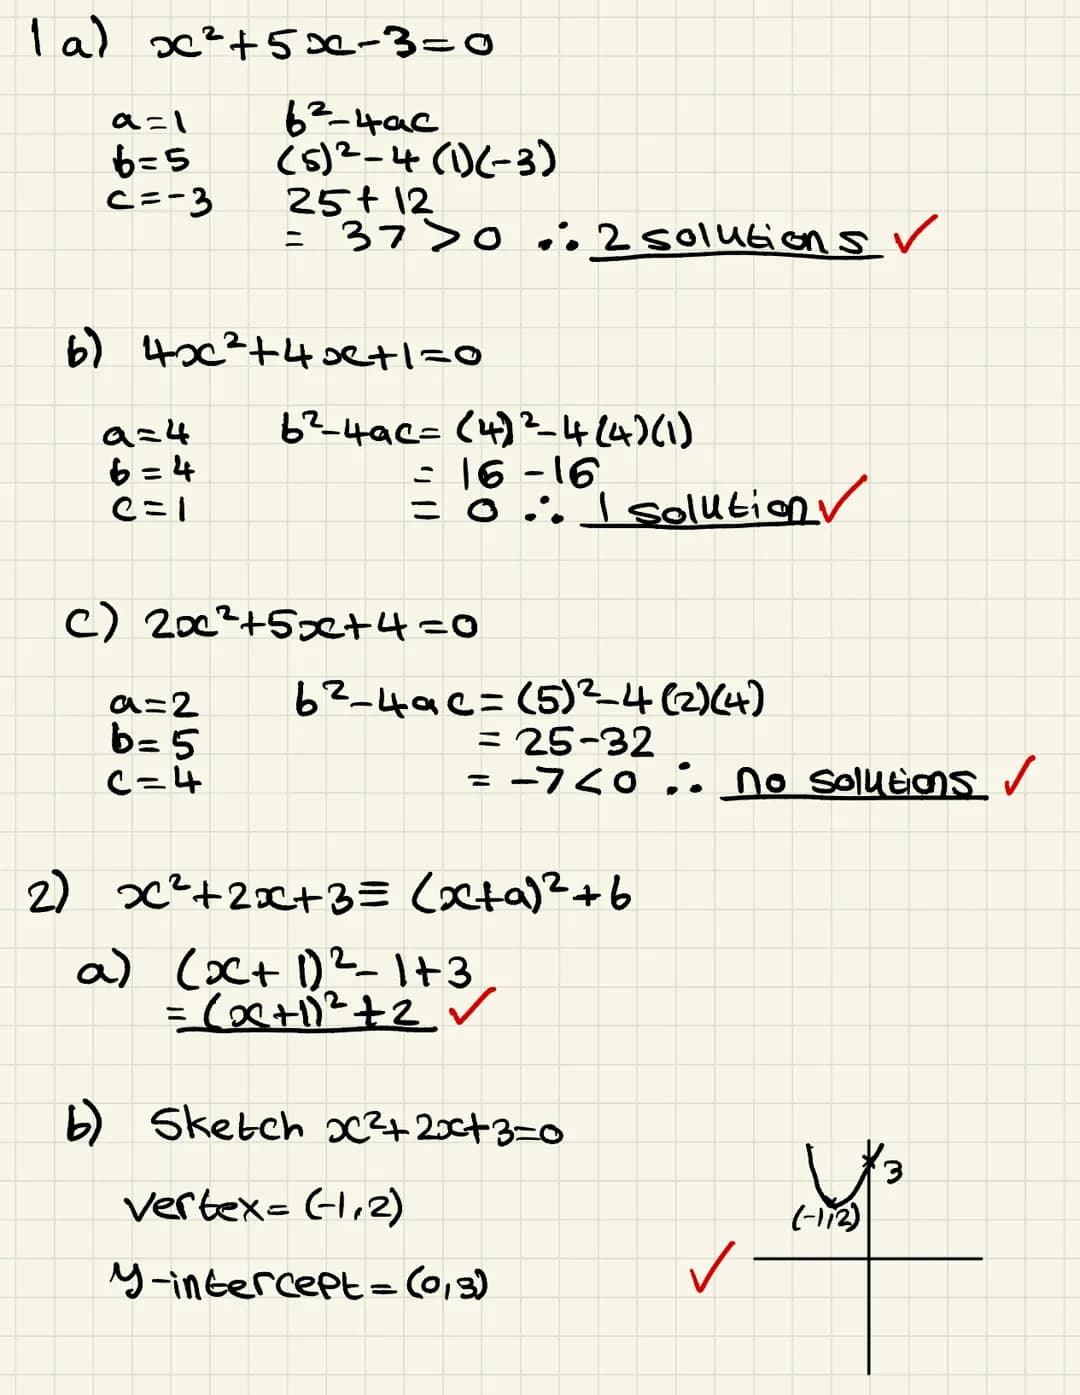 1a) x²+5x-3=0
a=1 b²-4ac
b=5 (5)²-4(1)(-3)
c=-3 25+12
= 37>0 ∴ 2 solutions ✓
b) 4x²+4x+1=0
a=4 b²-4ac= (4)²-4(4)(1)
b=4 = 16-16
c=1 = 0 ∴ 1 solution ✓
c) 2x²+5x+4=0
a=2 b²-4ac= (5)²-4(2)(4)
b=5 = 25-32
c=4 = -7<0 ∴ no solutions ✓
2) x²+2x+3≡ (x+a)²+b
a) (x+1)²-1+3
= (x+1)²+2 ✓
b) Sketch x²+2x+3=0
vertex= (-1,2)
y-intercept= (0,3) ✓
3
(-1,2)